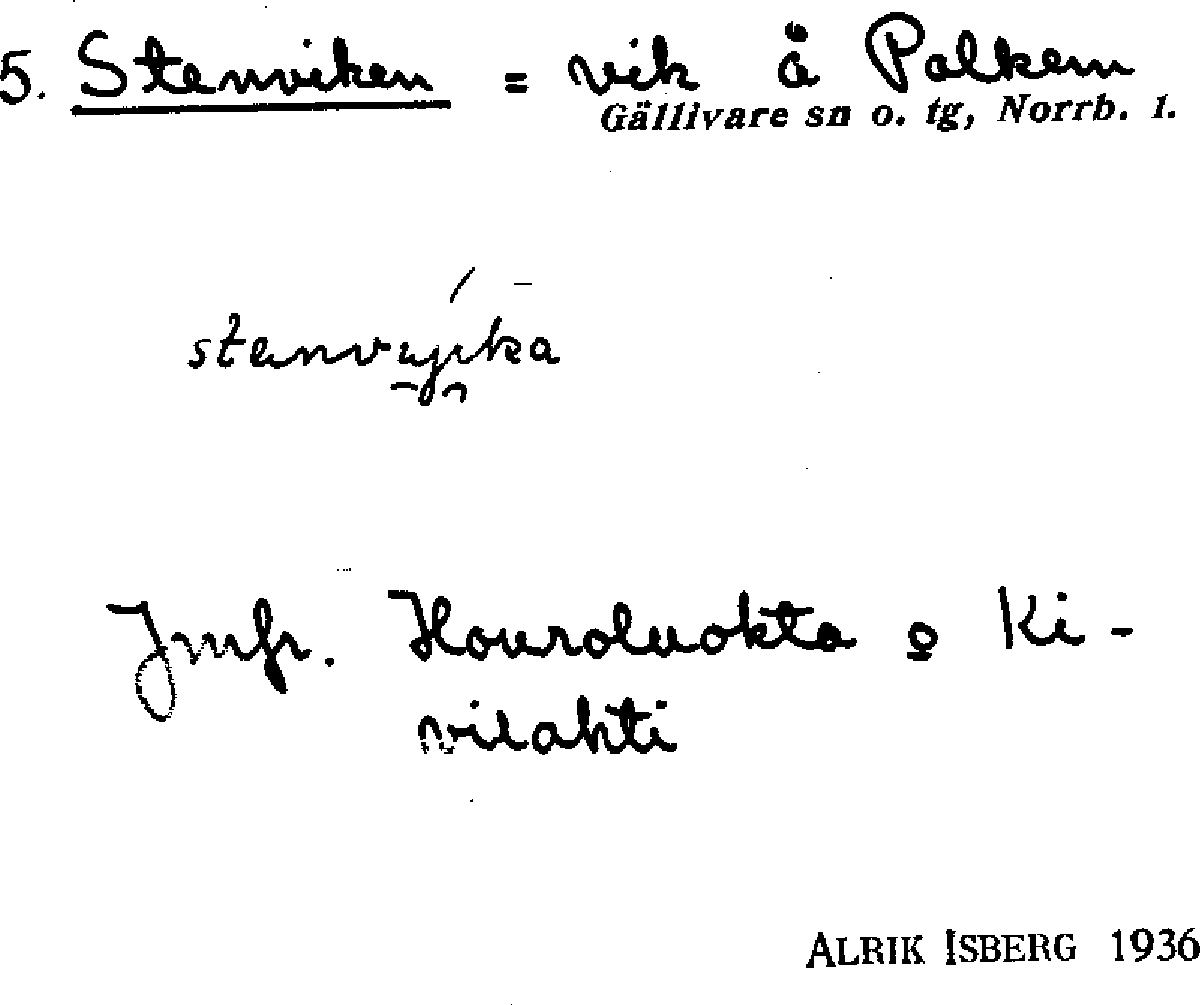 5. Stenviken = vik å Palkem
Gällivare sn o. tg, Norrb. l.
Jmfr. Houroluokta o Ki-
vilahti
ALRIK ISBERG 1936